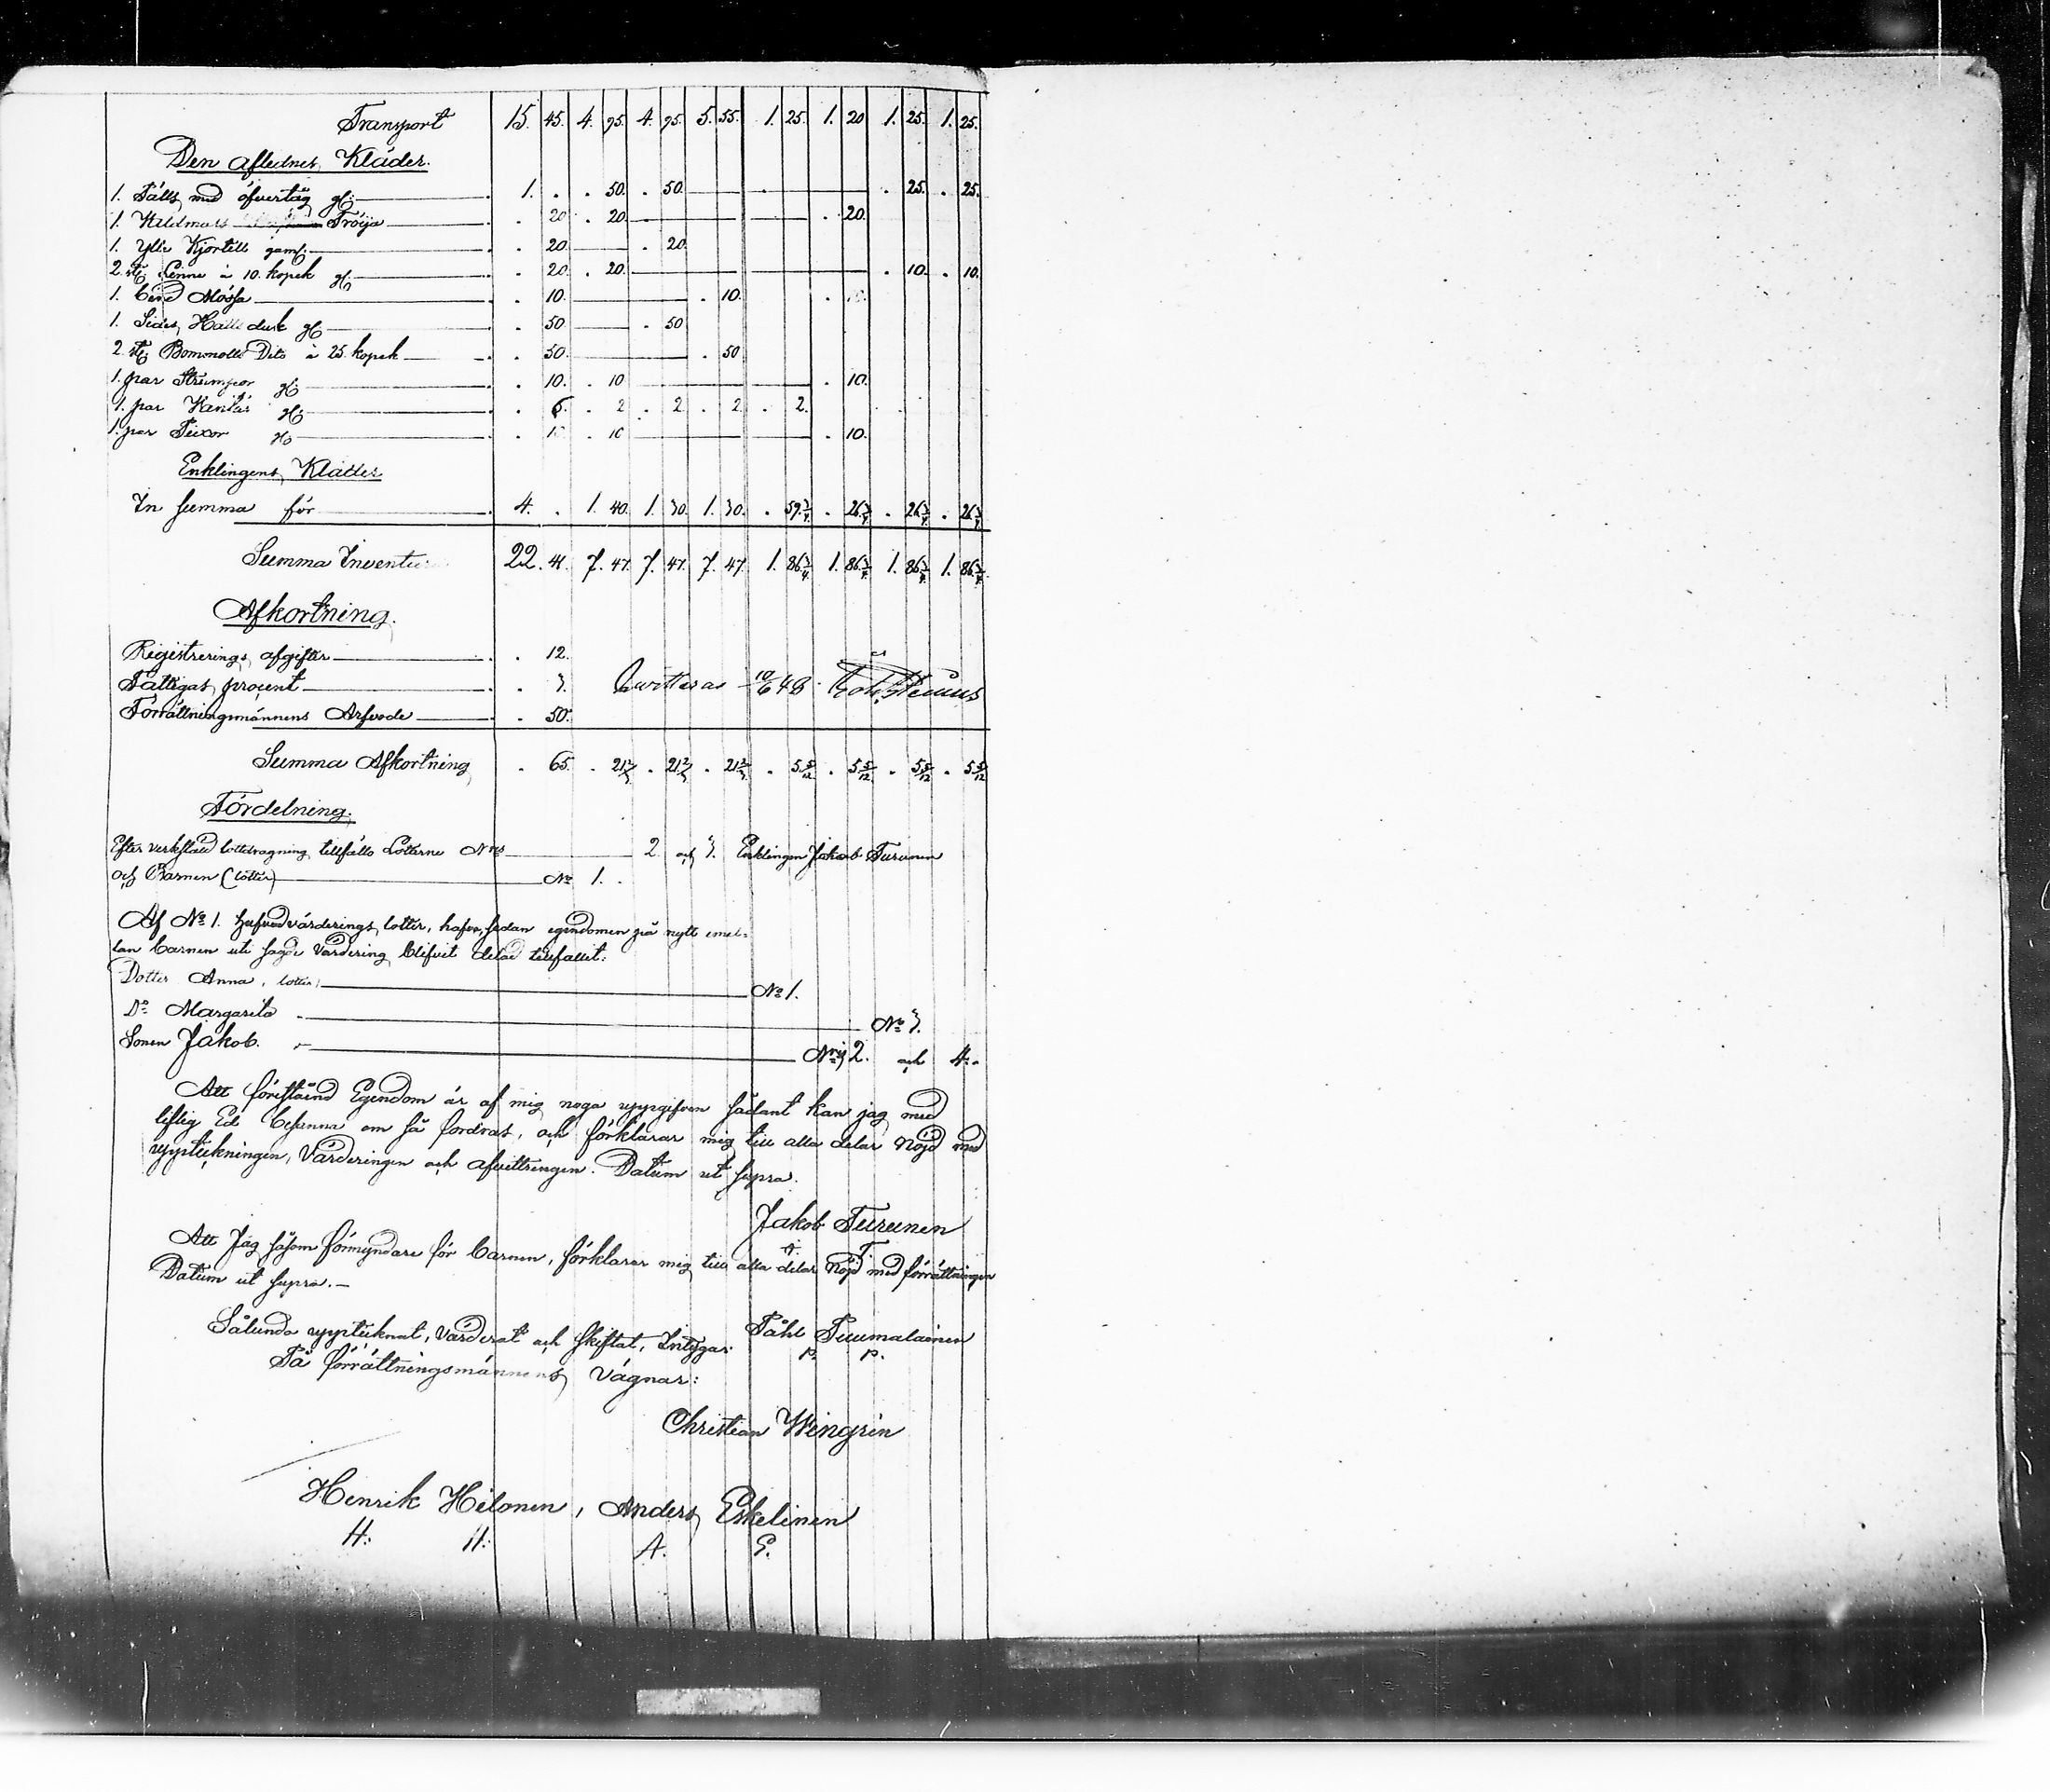 Transport 15. 45. 4. 95. 4. 95. 5. 55. 1. 25. 1. 20 1. 25. 1. 25.
Den aflednes Kläder.
1. Fälls med öfvertåg gl: 1. . . 50. . 50. . 25. . 25.
1. Waldmars Tröija . 20 . 20. . 20.
1. Ylle Kjortell gaml. . 20. . 20.
2. st: Linne à 10. kopek gl: . 20. . 20. . 10. . 10.
1. bind Mössa . 10. . 10. .
1. Sides Halls duk gl: . 50. . 50
2. st: Bommolls Dito à 25. kopek . 50. . 50
1. par Strumpor gl: . 10. . 10 . 10.
1. par Wantar gl: . 6. . 2 . 2. . 2. . 2.
1. par Pixor gl: . 10 . 10 . 10.
Enklingens Kläder
In summa för 4. . 1. 40. 1. 30. 1. 30. . 59 3/4. . 26 3/4. . 26 3/4. . 26 3/4.
Summa Inventu 22. 41. 7. 47. 7. 47. 7. 47. 1. 86 3/4. 1. 86 3/4. 1. 86 3/4. 1. 86 3/4.
Afkortning.
Registrerings afgifter . 12.
Fattigas procent . 3. Qvitteras 10/6 48.
Förrättningsmännens Arfvode . 50.
Summa Afkortning . 65. . 21 2/3 . 21 2/3 . 21 2/3 . 5 5/12 . 5 5/12 . 5 5/12 . 5 5/12
Fördelning.
Efter verkstäld lottdragning tillfälls Lotterne Nris 2. och 3. Enklingen Jakob Turunen
och Barnen (lotter) No 1.
Af No 1. hufvudvärderings lotter, hafva, sedan egendomen på nytt emel=
lan barnen uti sagde Värdering blifvit delad tillfallit:
Dotter Anna, lotter, No 1.
Do Margareta No 3.
Sonen Jakob. Nris 2. och 4.
Att föreståend Egendom är af mig noga uppgifven sådant kan jag med
liflig Ed besanna om så fordras, och förklarar mig till alla delar Nöjd med
uppteckningen, Värderingen och afvittringen. Datum ut supra.
Jakob Turunen
J. T.
Att Jag såsom förmyndare för barnen, förklarar mig till alla delar Nöjd med förrättningen
Datum ut supra.—
Påhl Tuumalainen
P. P.
Sålunda upptecknat, Värderat och skiftat, Intygar:
På förrättningsmännens Vägnar:
Christian Wingrén
Henrik Hilonen, Anders Eskelinen
H: H: A. E.